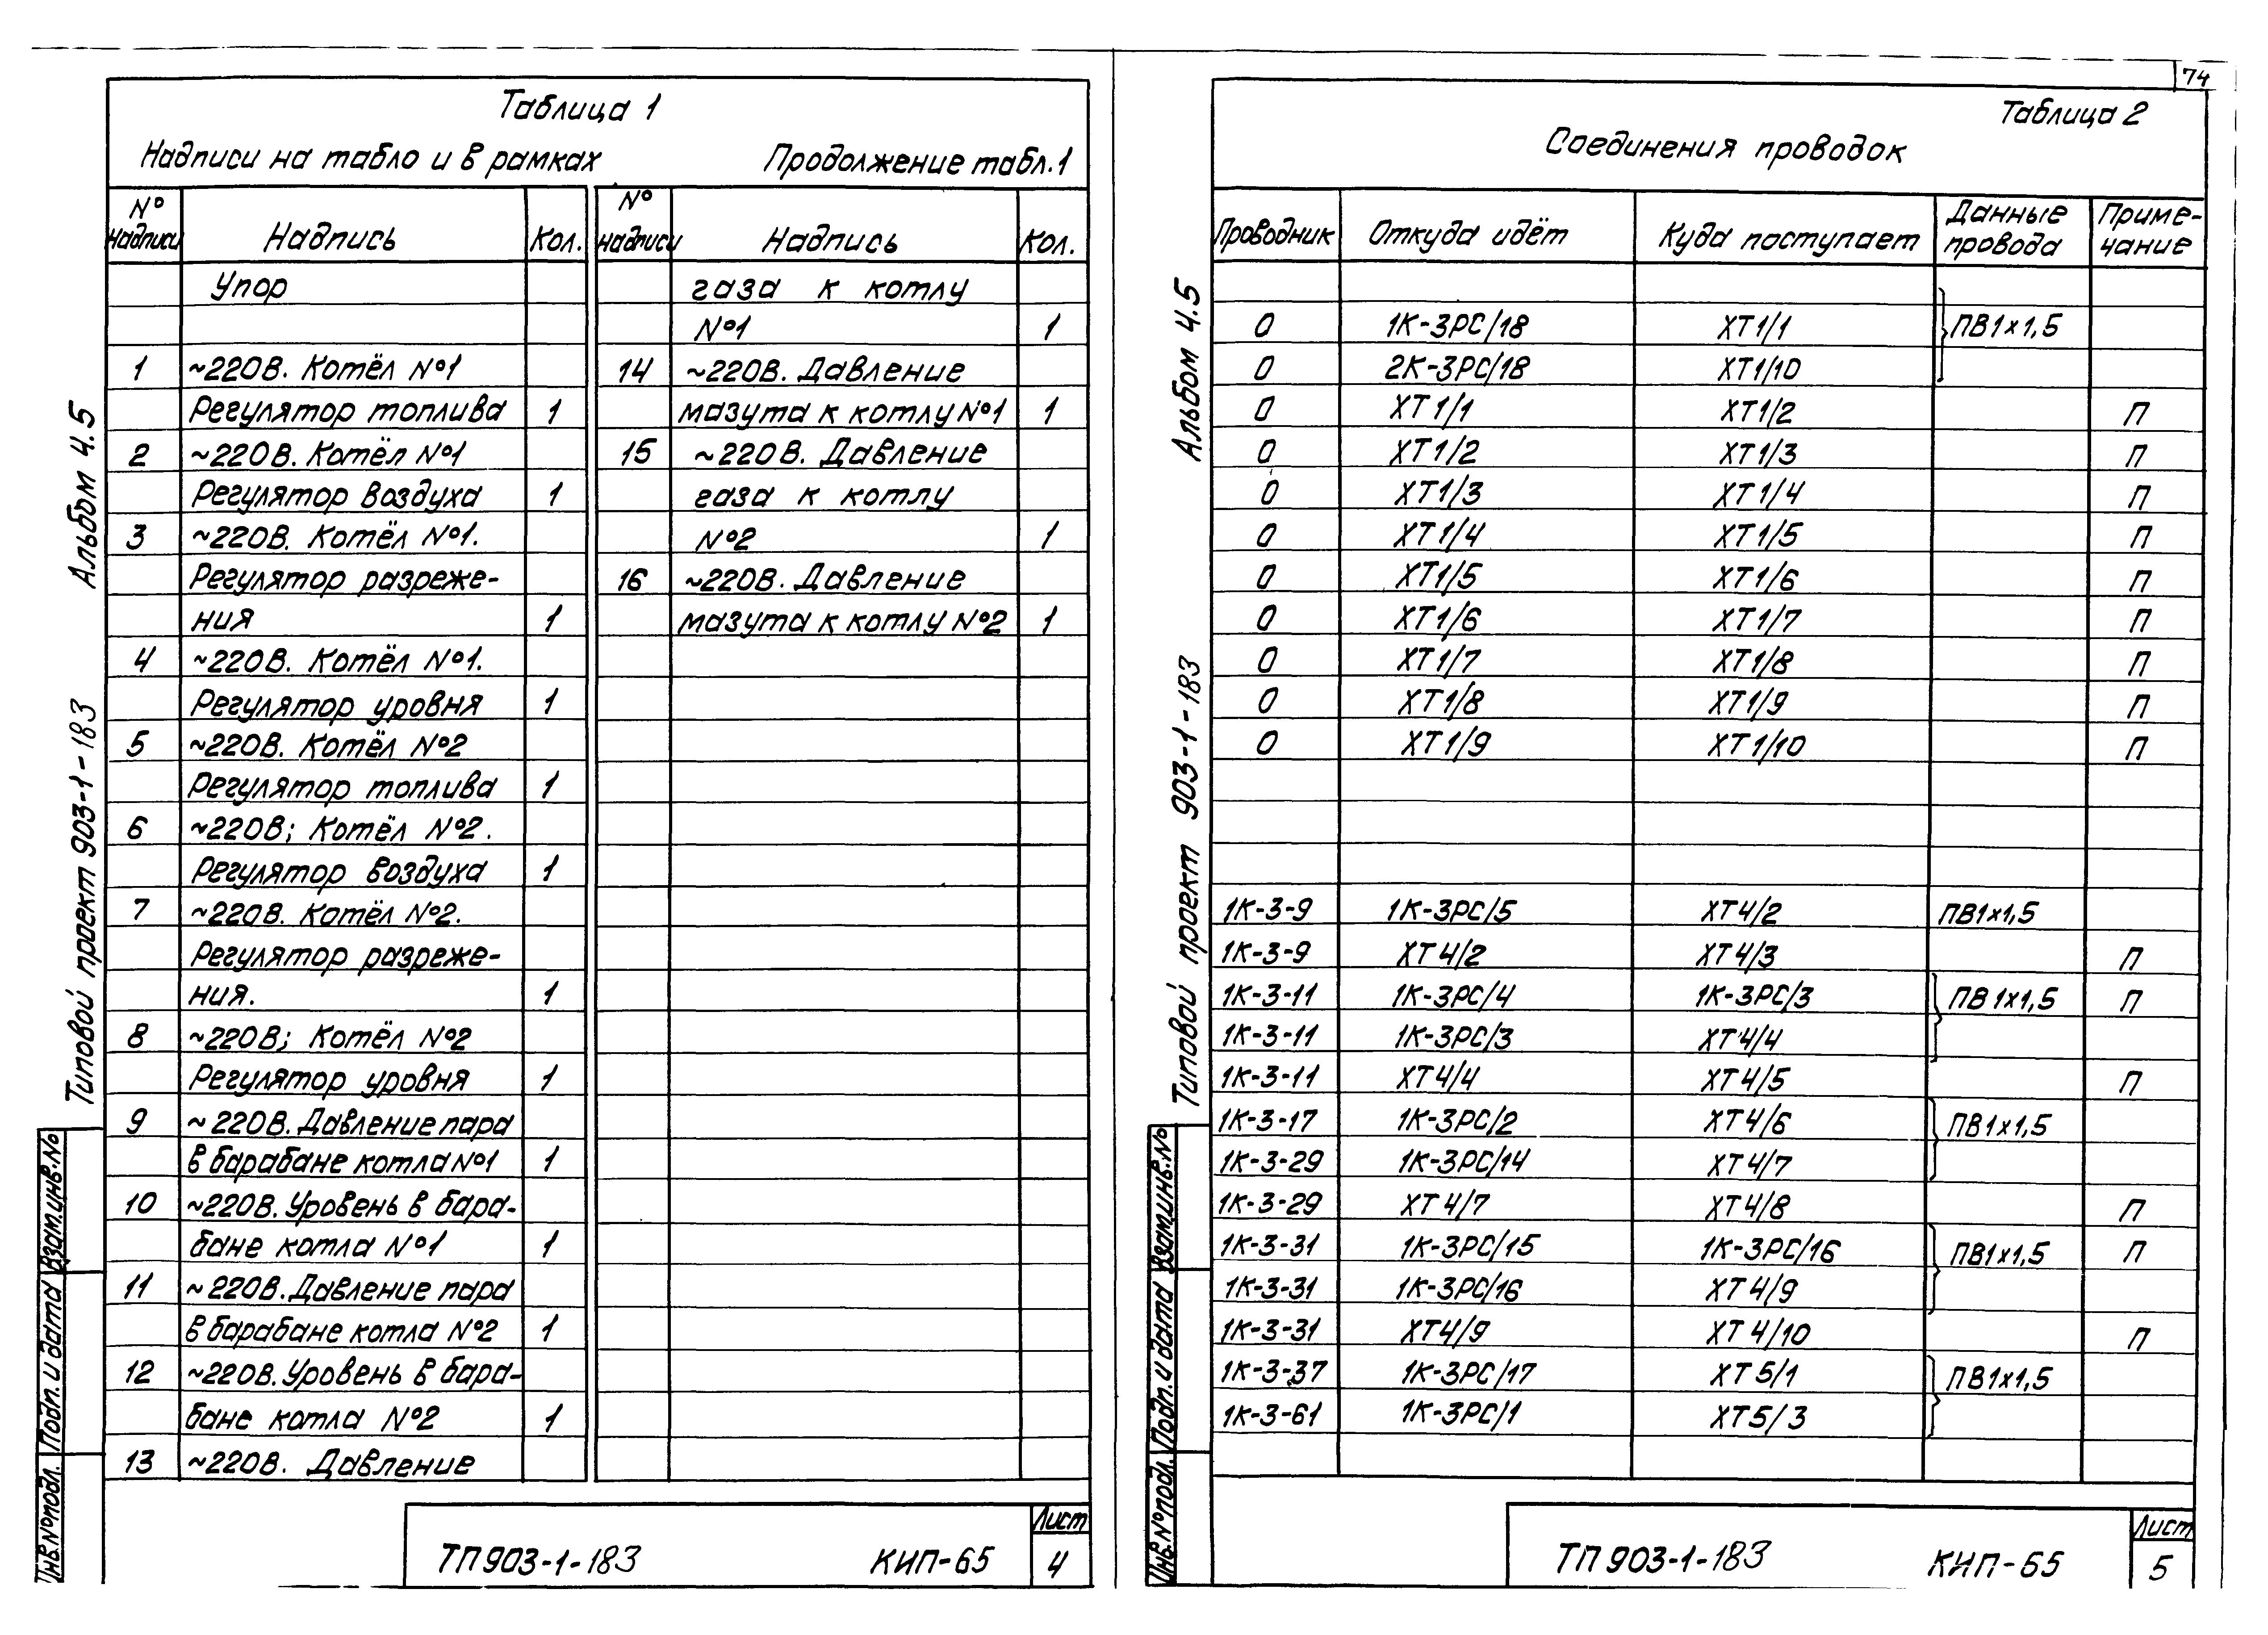 Таблица 1
Надписи на табло и в рамках Продолжение табл.1
№ надписи Надпись Кол.
Упор
1 ~220В. Котёл №1
Регулятор топлива 1
2 ~220В. Котёл №1
Регулятор воздуха 1
3 ~220В. Котёл №1.
Регулятор разреже-
ния 1
4 ~220В. Котёл №1.
Регулятор уровня 1
5 ~220В. Котёл №2
Регулятор топлива 1
6 ~220В; Котёл №2.
Регулятор воздуха 1
7 ~220В. Котёл №2.
Регулятор разреже-
ния. 1
8 ~220В; Котёл №2
Регулятор уровня 1
9 ~220В. Давление пара
в барабане котла №1 1
10 ~220В. Уровень в бара-
бане котла №1 1
11 ~220В. Давление пара
в барабане котла №2 1
12 ~220В. Уровень в бара-
бане котла №2 1
13 ~220В. Давление
№ надписи Надпись Кол.
газа к котлу
№1 1
14 ~220В. Давление
мазута к котлу №1 1
15 ~220В. Давление
газа к котлу
№2 1
16 ~220В. Давление
мазута к котлу №2 1
Альбом 4.5
Типовой проект 903-1-183
Взам.инв.№
Подп. и дата
Инв.№подл.
ТП903-1-183 КИП-65
Лист
4
74
Таблица 2
Соединения проводок
Проводник Откуда идёт Куда поступает Данные провода Приме-чание
0 1К-3РС/18 ХТ1/1 ПВ1х1,5
0 2К-3РС/18 ХТ1/10
0 ХТ1/1 ХТ1/2 П
0 ХТ1/2 ХТ1/3 П
0 ХТ1/3 ХТ1/4 П
0 ХТ1/4 ХТ1/5 П
0 ХТ1/5 ХТ1/6 П
0 ХТ1/6 ХТ1/7 П
0 ХТ1/7 ХТ1/8 П
0 ХТ1/8 ХТ1/9 П
0 ХТ1/9 ХТ1/10 П
1К-3-9 1К-3РС/5 ХТ4/2 ПВ1х1,5
1К-3-9 ХТ4/2 ХТ4/3 П
1К-3-11 1К-3РС/4 1К-3РС/3 ПВ1х1,5 П
1К-3-11 1К-3РС/3 ХТ4/4
1К-3-11 ХТ4/4 ХТ4/5 П
1К-3-17 1К-3РС/2 ХТ4/6 ПВ1х1,5
1К-3-29 1К-3РС/14 ХТ4/7
1К-3-29 ХТ4/7 ХТ4/8 П
1К-3-31 1К-3РС/15 1К-3РС/16 ПВ1х1,5 П
1К-3-31 1К-3РС/16 ХТ4/9
1К-3-31 ХТ4/9 ХТ4/10 П
1К-3-37 1К-3РС/17 ХТ5/1 ПВ1х1,5
1К-3-61 1К-3РС/1 ХТ5/3
Альбом 4.5
Типовой проект 903-1-183
Взам.инв.№
Подп. и дата
Инв.№подл.
ТП903-1-183 КИП-65
Лист
5